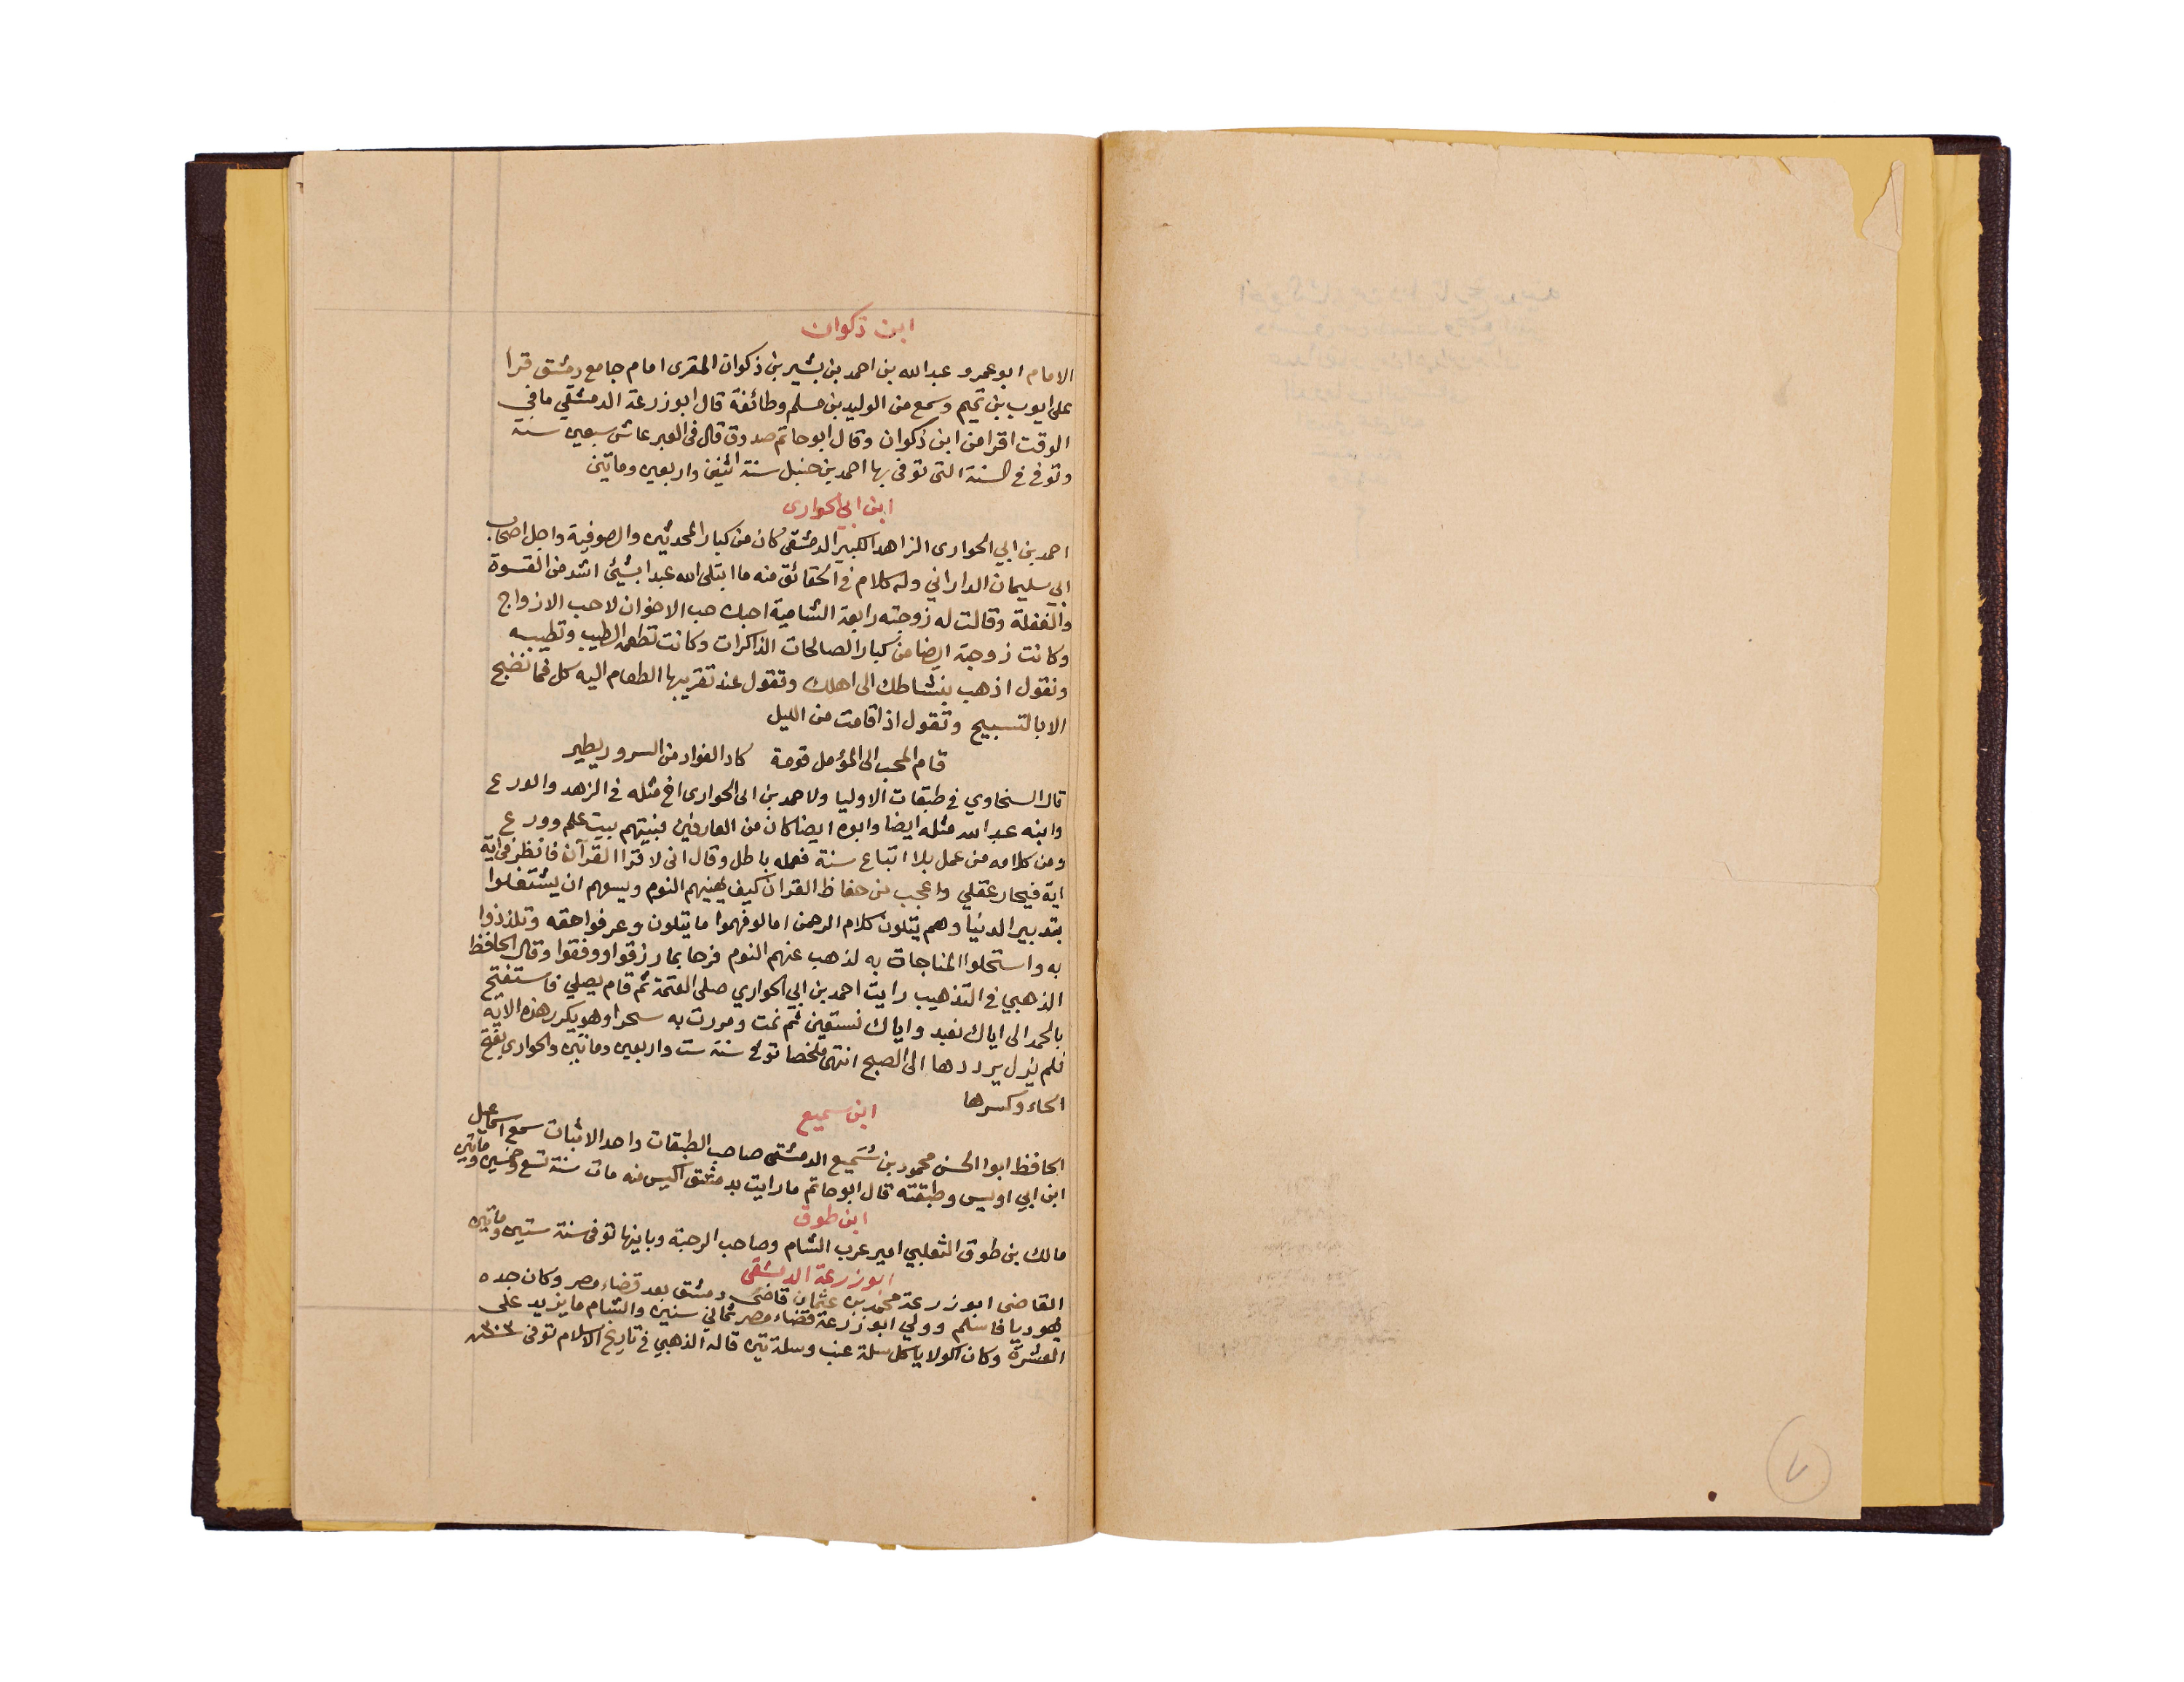 ابن ذكوان
الامام ابو عمرو عبد الله بن احمد بن بشير بن ذكوان المقرى امام جامع دمشق قرا
على ايوب بن تميم وسمع من الوليد بن مسلم وطائفة قال ابو زرعة الدمشقي ما في
الوقت اقرا من ابن ذكوان وقال ابو حاتم صدوق قال في العبر عاش سبعين سنة
وتوفي في السنة التى توفى بها احمد بن حنبل سنة اثنين واربعين وماتين
ابن ابي الحوارى
احمد بن ابي الحوارى الزاهد الكبير الدمشقي كان من كبار المحدثين والصوفية واجل اصحاب
ابي سليمان الداراني وله كلام في الحقائق منه ما ابتلى الله عبدا بشيئ اشد من القسوة
والغفلة وقالت له زوجته رابعة الشامية احبك حب الاخوان لا حب الازواج
وكانت زوجته ايضا من كبار الصالحات الذاكرات وكانت تطعمه الطيب وتطيبه
وتقول اذهب بنشاطك الى اهلك وتقول عند تقريبها الطعام اليه كل فما نضج
الا بالتسبيح وتقول اذا قامت من الليل
قام المحب الى المؤمل قومة كاد الفواد من السرور يطير
قال السخاوي في طبقات الاوليا ولاحمد بن ابى الحوارى اخ مثله في الزهد والورع
وابنه عبد الله مثله ايضا وابوه ايضا كان من العارفين فبيتهم بيت علم وورع
ومن كلامه من عمل بلا اتباع سنة فعمله باطل وقال انى لا قرا القرآن فانظر في اية
اية فيحار عقلي واعجب من حفاظ القران كيف يهنيهم النوم ويسعهم ان يشتغلوا
بتدبير الدنيا وهم يتلون كلام الرحمن اما لو فهموا ما يتلون وعرفوا حقه وتلذذوا
به واستحلوا المناجاة به لذهب عنهم النوم فرحا بما رزقوا ووفقوا وقال الحافظ
الذهبي في التذهيب رايت احمد بن ابي الحواري صلى العتمة ثم قام يصلي فاستفتح
بالحمد الى اياك نعبد واياك نستعين ثم نمت ومررت به سحرا وهو يكرر هذه الاية
فلم يزل يرددها الى الصبح انتهى ملخصا توفي سنة ست واربعين وماتين والحوارى بفتح
الحاء وكسرها
ابن سميع
الحافظ ابوا الحسن محمود بن سُمَيع الدمشقى صاحب الطبقات واحد الاثبات سمع اسماعيل
ابن ابي اويس وطبقته قال ابو حاتم ما رايت بدمشق اكيس منه مات سنة تسع وخمسين وماتين
ابن طوق
مالك بن طوق الثعلبي امير عرب الشام وصاحب الرحبة وبانيها توفى سنة ستين وماتين
ابو زرعة الدمشقي
القاضى ابو زرعة محمد بن عثمان قاضى دمشق بعد قضاء مصر وكان جده
يهوديا فاسلم وولي ابو زرعة قضاء مصر ثماني سنين والشام ما يزيد على
العشرة وكان اكولا ياكل سلة عنب وسلة تين قاله الذهبي في تاريخ الاسلام توفى ٣٠٣
٧